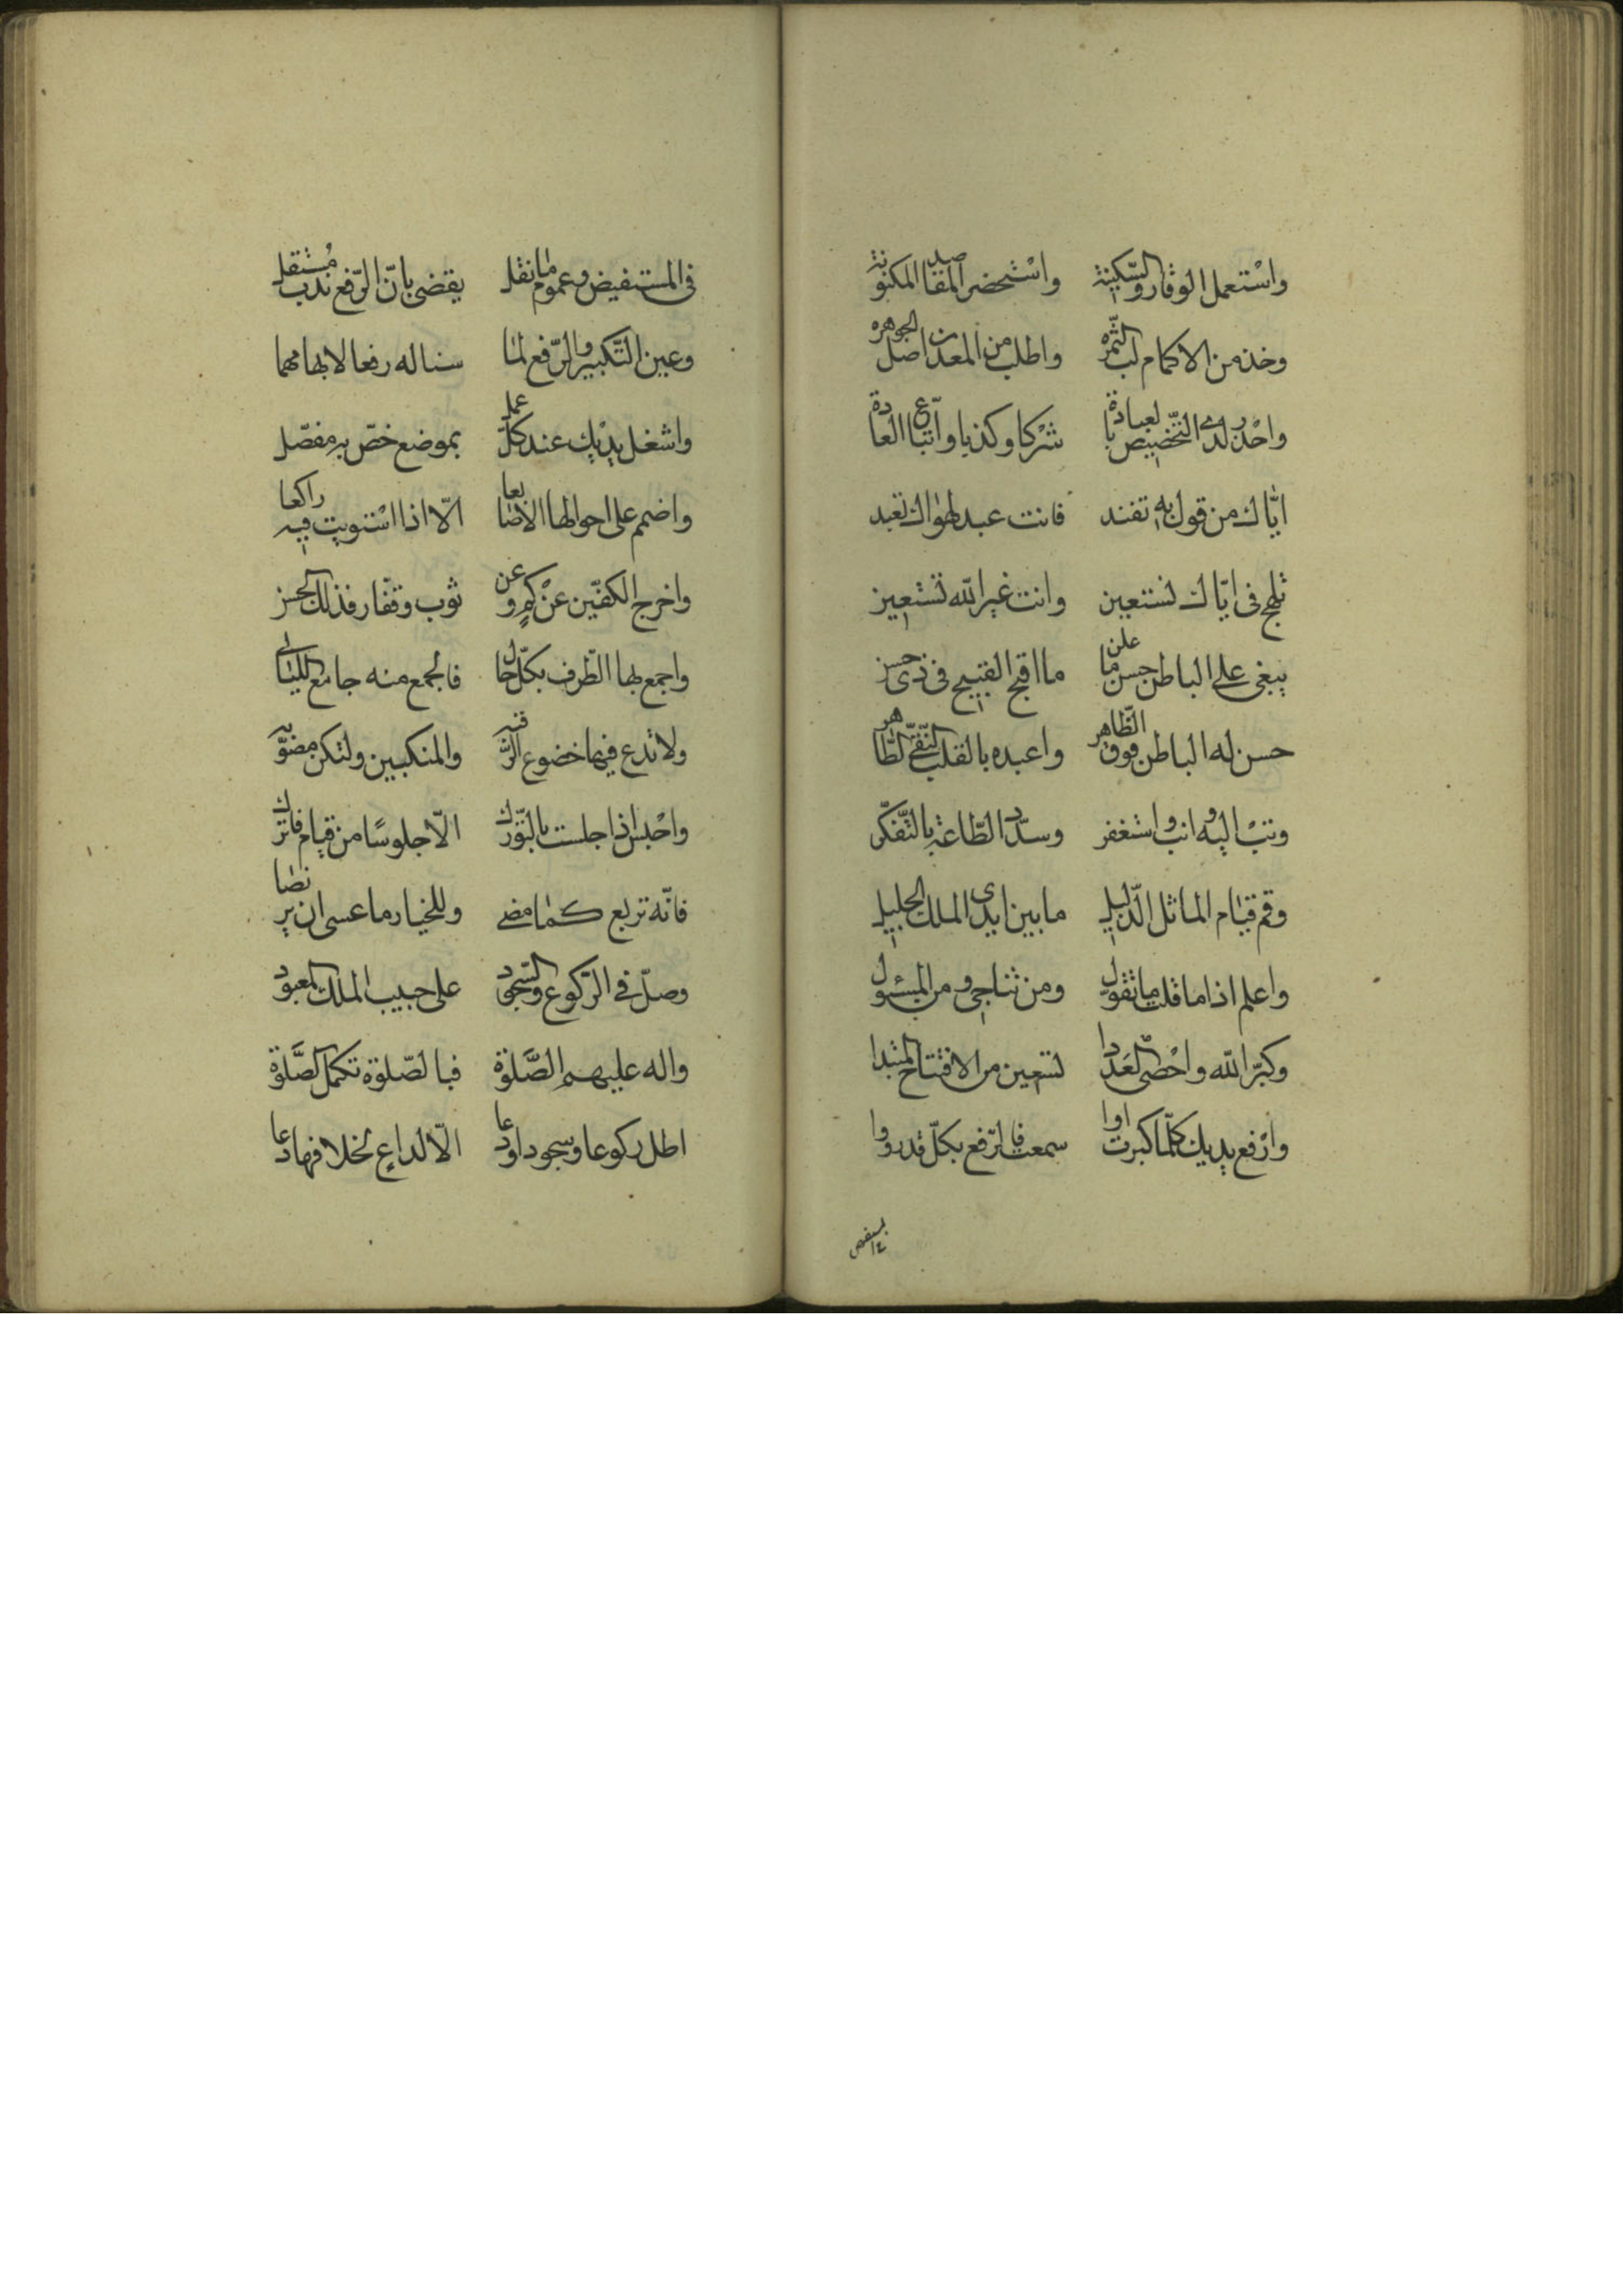 واسْتعمل الوقار والسّكينة واسْتحضر المقاصد المكنونة
وخذ من الاكمام لبّ الثّمره واطلب من المعدن اصل الجوهره
واحْذر لدى التّخصيص بالعبادة شرْكا وكذبا واتّباع العادة
ايّاك من قول به تفند فانت عبد لهواك تعبد
تلهج فى ايّاك نستعين وانت غير الله تستعين
ينعى على الباطن حسن ما علن ما اقبح القبيح فى زى حسن
حسن له الباطن فوق الظّاهر واعبده بالقلب النّقىّ الطّاهر
وتبْ اليه وانب واستغفر وسدّد الطّاعة بالتّفكّر
وقم قيام الماثل الذّليل ما بين ايدى الملك الجليل
واعلم اذا ما قلت ما تقول ومن تناجى ومن المسئول
وكبّر الله واحْصى العَدَدا لتعيين من الافتتاح المبتدا
وارْفع يديك كلّما كبرت او سمعت فالرّفع بكلّ قد رووا
فى المستفيض وعموم ما نقل يقضى بانّ الرّفع ندب مُستقل
وعين التّكبير والرّفع لما سنا له رفعا لا بهامهما
واشغل يديْك عند كلّ عمل بموضع خصّ به مفصّل
واضمم على احوالها الاصابعا الّا اذا اسْتويت فيه راكعا
واخرج الكفّين عنْ كمٍ وعن ثوب وقفّار فذلك الحسن
واجمع بها الطّرف بكلّ حال فالجمع منه جامع للبال
ولا تدع فيها خضوع الرّقبه والمنكبين ولتكن مضوّبه
واحْبس اذا جلست بالتّورّك الّا جلوسًا من قيام فاترك
فانّه تربع كما مضى وللخيار ما عسى ان يرتضا
وصلّ فى الرّكوع والسّجود على حبيب الملك المعبود
واله عليهم الصَّلوة فبالصّلوة تكمل الصَّلوة
اطل ركوعا وسجودا ودعا الّا لداعٍ لخلافها دعا